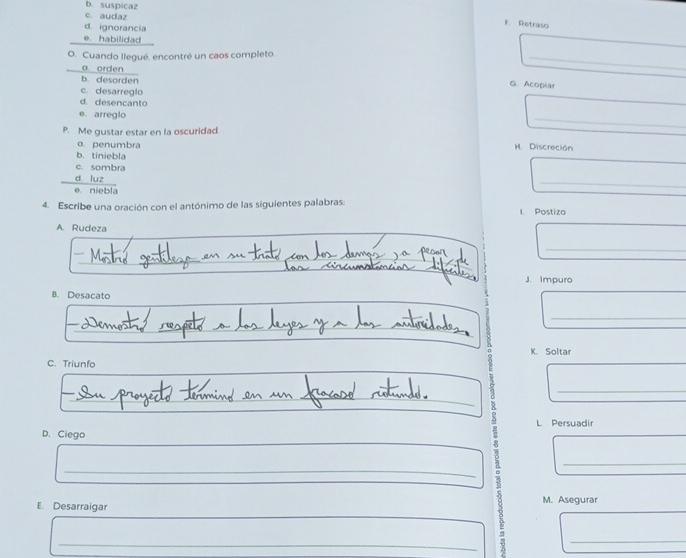 b. suspicaz
c. audaz
d. ignorancia
e. habilidad
O. Cuando llegué, encontré un caos completo.
a. orden
b. desorden
c. desarreglo
d. desencanto
e. arreglo
P. Me gustar estar en la oscuridad
a. penumbra
b. tiniebla
c. sombra
d. luz
e. niebla
4. Escribe una oración con el antónimo de las siguientes palabras:
A. Rudeza
- Mostró gentileza en su trato con los demás, a pesar de
las circunstancias difíciles.
B. Desacato
- Demostró respeto a las leyes y a las autoridades.
C. Triunfo
- Su proyecto terminó en un fracaso rotundo.
D. Ciego
E. Desarraigar
F. Retraso
G. Acopiar
H. Discreción
I. Postizo
J. Impuro
K. Soltar
L. Persuadir
M. Asegurar
la reproducción total o parcial de este libro por cualquier medio o procedimiento